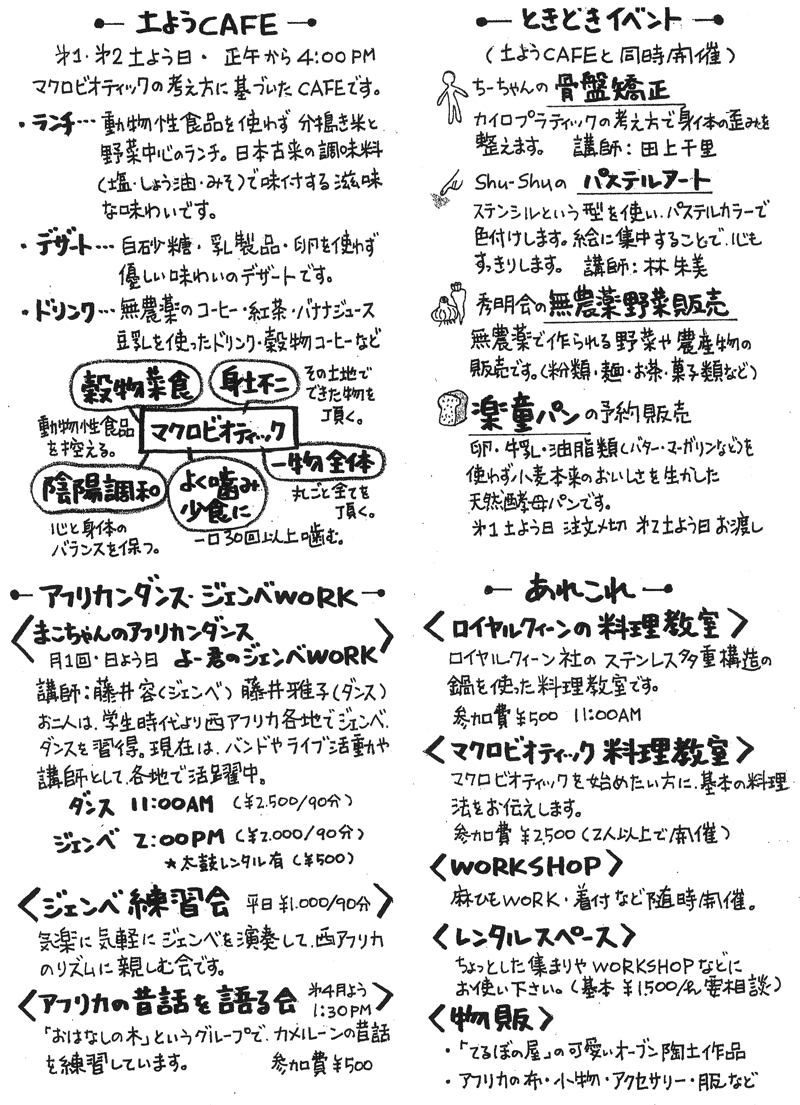 土ようCAFE
第1・第2土よう日・正午から4:00PM
マクロビオティックの考え方に基づいたCAFEです。
・ランチ…動物性食品を使わず分搗き米と
野菜中心のランチ。日本古来の調味料
(塩・しょう油・みそ)で味付する滋味
な味わいです。
・デザート…白砂糖・乳製品・卵を使わず
優しい味わいのデザートです。
・ドリンク…無農薬のコーヒー・紅茶・バナナジュース
豆乳を使ったドリンク・穀物コーヒーなど
穀物菜食
身土不二
その土地で
できた物を
頂く。
動物性食品
を控える。
マクロビオティック
一物全体
丸ごと全てを
頂く。
陰陽調和
心と身体の
バランスを保つ。
よく噛み
少食に
一口30回以上噛む。
アフリカンダンス・ジェンベWORK
〈まこちゃんのアフリカンダンス
月1回・日よう日 よー君のジェンベWORK〉
講師:藤井容(ジェンベ) 藤井雅子(ダンス)
お二人は、学生時代より西アフリカ各地でジェンベ、
ダンスを習得。現在は、バンドやライブ活動や
講師として、各地で活躍中。
ダンス 11:00AM (¥2,500/90分)
ジェンベ 2:00PM (¥2,000/90分)
★太鼓レンタル有(¥500)
〈ジェンベ練習会 平日¥1,000/90分〉
気楽に気軽にジェンベを演奏して、西アフリカ
のリズムに親しむ会です。
〈アフリカの昔話を語る会 第4月よう 1:30PM〉
「おはなしの木」というグループで、カメルーンの昔話
を練習しています。 参加費¥500
ときどきイベント
(土ようCAFEと同時開催)
ちーちゃんの骨盤矯正
カイロプラティックの考え方で身体の歪みを
整えます。 講師:田上千里
Shu-Shuの パステルアート
ステンシルという型を使い、パステルカラーで
色付けします。絵に集中することで、心も
すっきりします。 講師:林朱美
秀明会の無農薬野菜販売
無農薬で作られる野菜や農産物の
販売です。(粉類・麺・お茶・菓子類など)
楽童パンの予約販売
卵・牛乳・油脂類(バター・マーガリンなど)を
使わず小麦本来のおいしさを生かした
天然酵母パンです。
第1土よう日 注文〆切 第2土よう日お渡し
あれこれ
〈ロイヤルクィーンの料理教室〉
ロイヤルクィーン社のステンレス多重構造の
鍋を使った料理教室です。
参加費¥500 11:00AM
〈マクロビオティック料理教室〉
マクロビオティックを始めたい方に、基本の料理
法をお伝えします。
参加費¥2,500(2人以上で開催)
〈WORKSHOP〉
麻ひもWORK・着付など随時開催。
〈レンタルスペース〉
ちょっとした集まりやWORKSHOPなどに
お使い下さい。(基本¥1,500/h 要相談)
〈物販〉
・「てるぼの屋」の可愛いオーブン陶土作品
・アフリカの布・小物・アクセサリー・服など